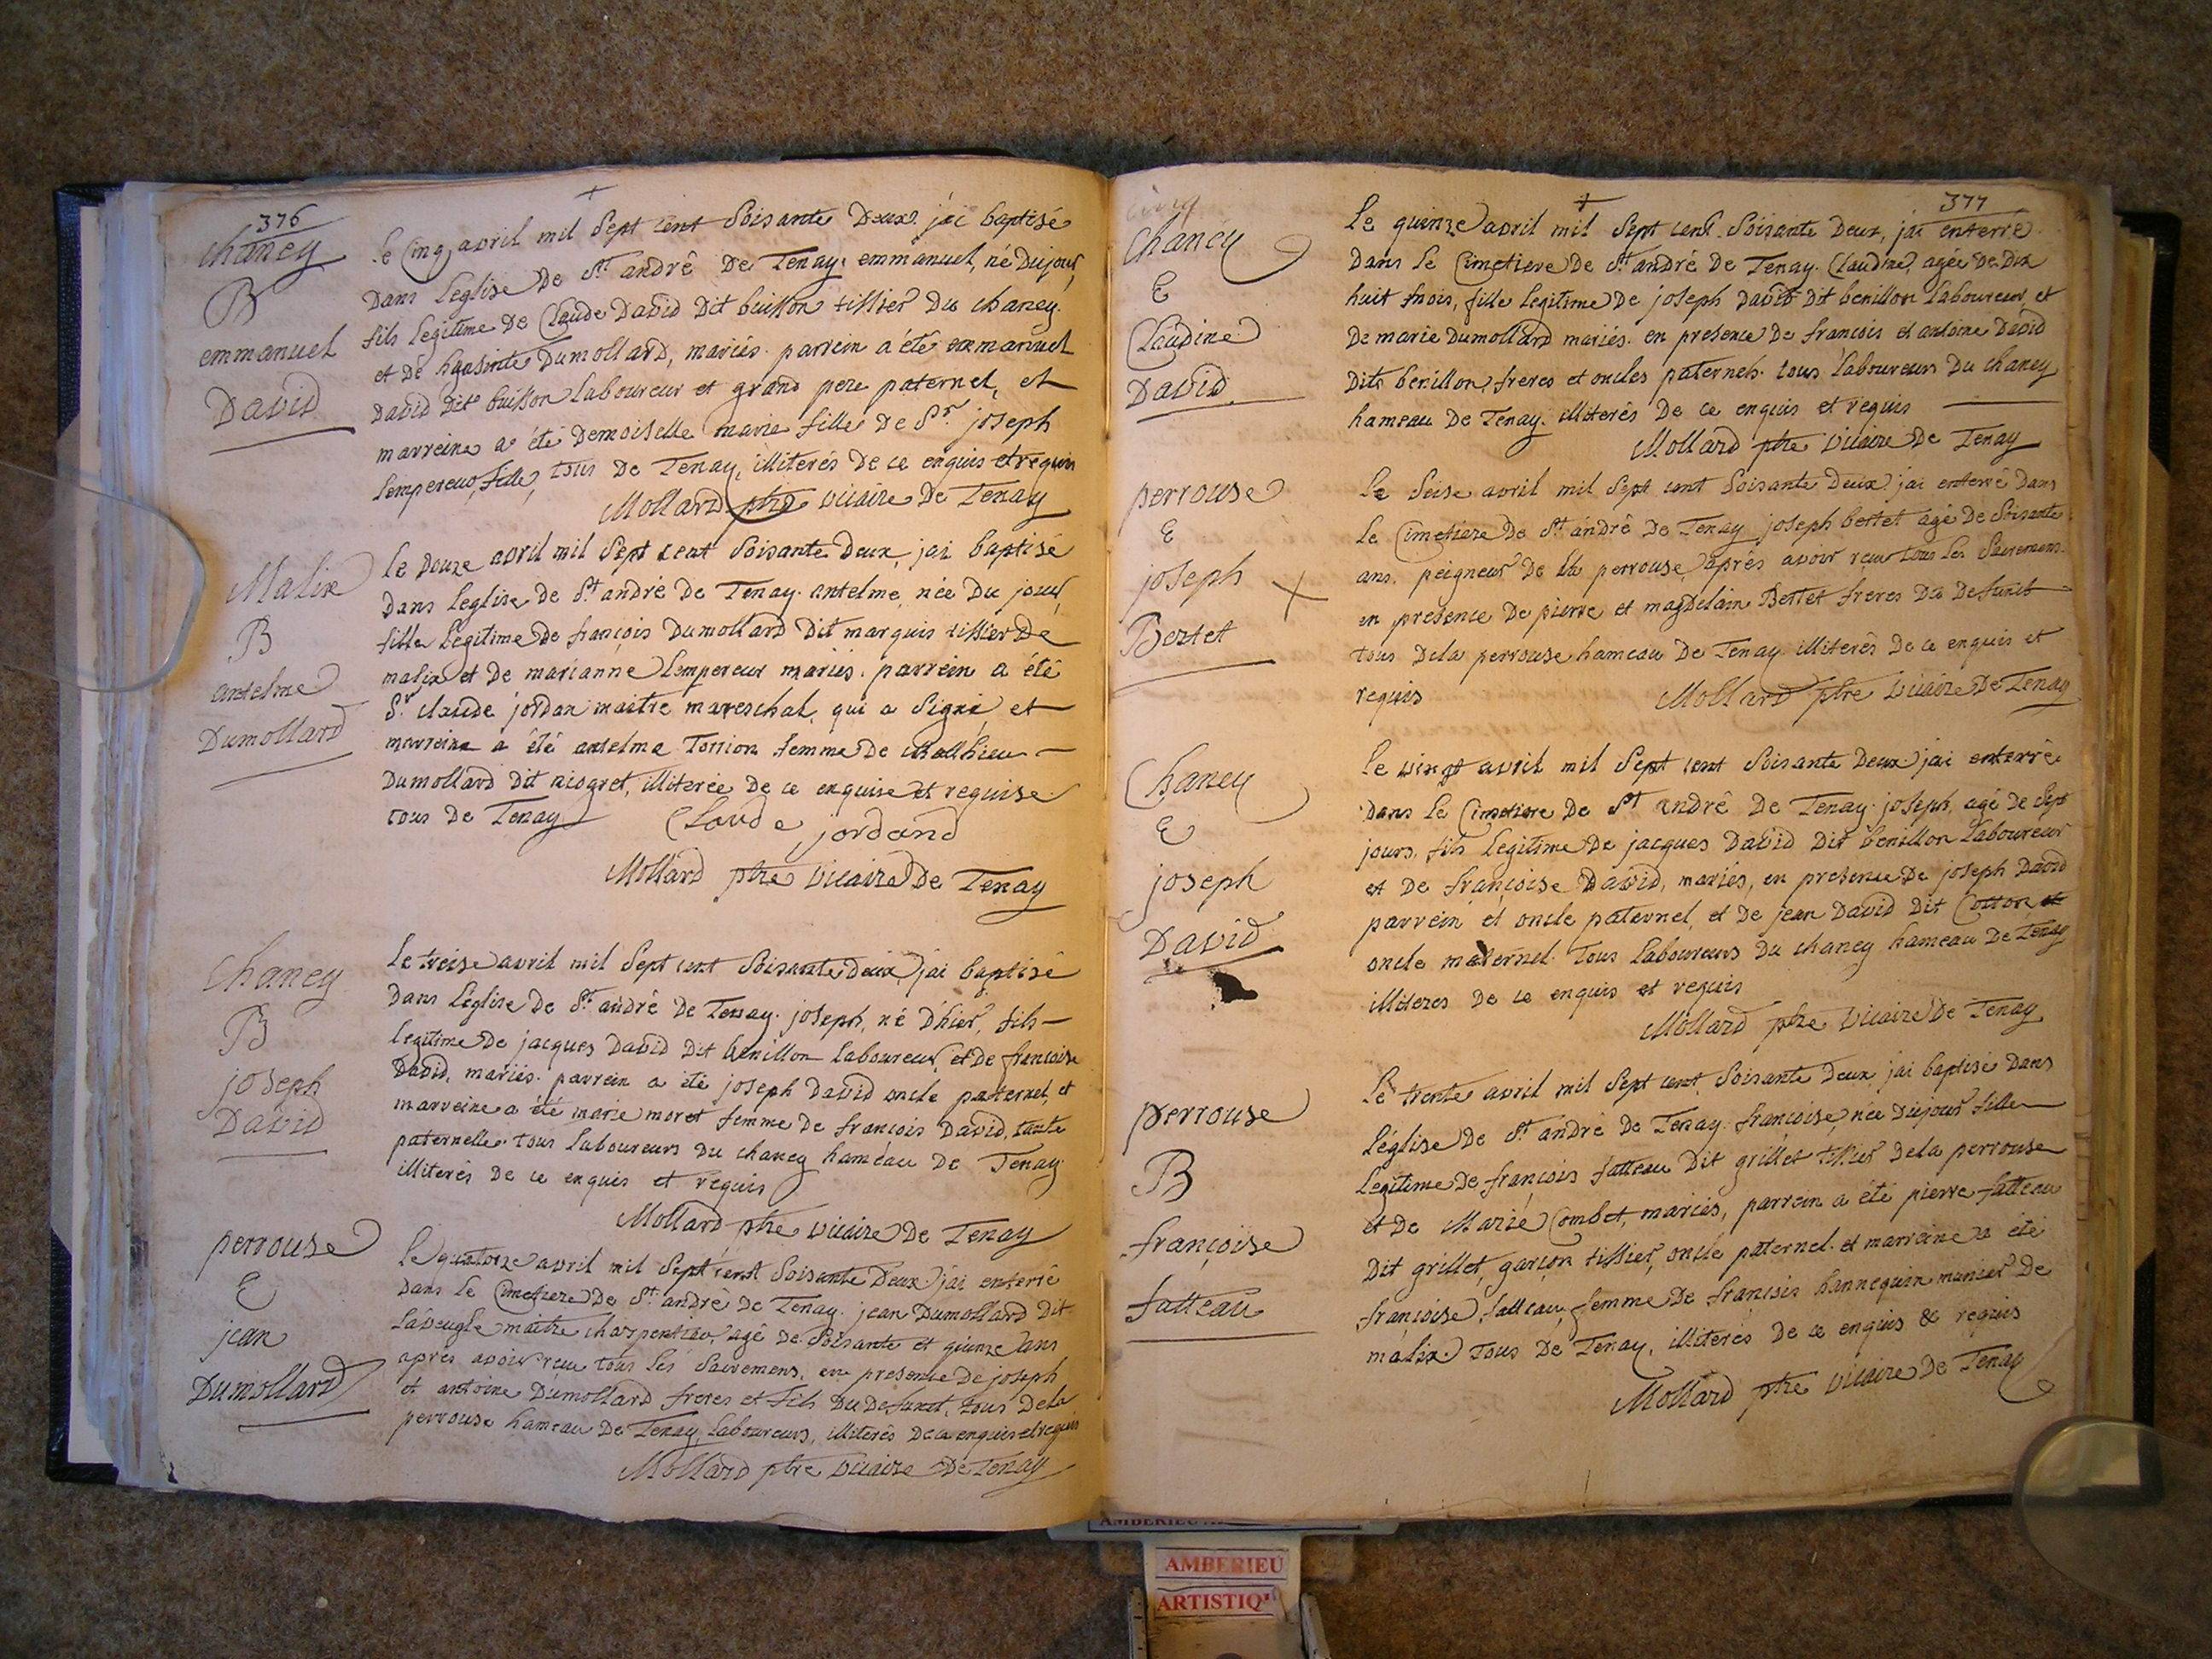 376
chaney
B
emmanuel
David
le Cinq avril mil Sept cent Soisante Deux jai baptisé
Dans l'eglise De St andré De Tenay. emmanuel, né Dujour,
fils legitime De Claude David Dit buisson tissier Du chaney
et De hyasinte Dumollard, mariés. parrein a été emmanuel
David Dit buisson laboureur et grand pere paternel, et
marreine a été Demoiselle marie fille De Sr. joseph
lempereur, fille, tous De Tenay, illiterés De ce enquis et requis
Mollard ptre vicaire De Tenay
Malix
B
antelme
Dumollard
le Douze avril mil Sept cent Soisante Deux, jai baptisé
Dans l'eglise De St andré De Tenay. antelme, née Du jour,
fille legitime De françois Dumollard Dit marquis tissier De
malix et De marianne lempereur mariés. parrein a été
Sr. claude jordan maitre mareschal, qui a Signé, et
marreine a été antelma Torrion femme De Mathieu
Dumollard Dit nicogret, illiterée De ce enquise et requise
tous De Tenay
Claude jordand
Mollard ptre vicaire De Tenay
chaney
B
joseph
David
le treise avril mil Sept cent Soisante Deux, jai baptisé
Dans l'église De St andré De Tenay. joseph, né D'hier, fils
legitime De jacques David Dit benillon laboureur, et De francoise
David, mariés. parrein a été joseph David oncle paternel, et
marreine a été marie moret femme De francois David, tante
paternelle. tous laboureurs Du chaney hameau De Tenay
illiterés De ce enquis et requis
Mollard ptre vicaire De Tenay
perrouse
E
jean
Dumollard
le quatorze avril mil Sept cent Soisante Deux jai enterré
Dans le Cimetiere De St. andrè De Tenay. jean Dumollard Dit
l'aveugle maitre charpentier, agé De Soisante et quinze ans
après avoir reçu tous les Sacremens, en presence De joseph
et antoine Dumollard freres et fils Du Defunct, tous Dela
perrouse hameau De Tenay, laboureurs, illiterés De ce enquis et requis
Mollard ptre vicaire De Tenay
377
chaney
E
Claudine
David
le quinze avril mil Sept cent Soisante Deux, jai enterré
Dans le Cimetiere De St andré De Tenay. Claudine, agée De Dix
huit mois, fille legitime De joseph David Dit benillon laboureur, et
De marie Dumollard mariés. en presence De francois et antoine David
Dits benillon, freres et oncles paternels. tous laboureurs Du chaney
hameau De Tenay. illiterés De ce enquis et requis
Mollard ptre vicaire De Tenay
perrouse
E
joseph
Bertet
le Seise avril mil Sept cent Soisante Deux jai enterré Dans
le Cimetiere De St andré De Tenay joseph bertet agé De Soisante
ans, peigneur De la perrouse, après avoir reçu tous les Sacremens.
en presence De pierre et magdelain Bertet freres Du Defunct
tous Dela perrouse hameau De Tenay illiterés De ce enquis et
requis
Mollard ptre vicaire De Tenay
Chaney
E
joseph
David
le vingt avril mil Sept cent Soisante Deux jai enterré
Dans le Cimetiere De St andré De Tenay. joseph, agé De Sept
jours, fils legitime De jacques David Dit benillon laboureur
et De françoise David, mariés, en presence De joseph David
parrein et oncle paternel, et De jean David Dit Cotton
oncle maternel. tous laboureurs Du chaney hameau De Tenay
illiteres De ce enquis et requis
Mollard ptre vicaire De Tenay
perrouse
B
françoise
fatteau
le trente avril mil Sept cent Soisante Deux jai baptisé Dans
l'église De St andrè De Tenay. françoise, née Dujour fille
legitime De françois fatteau Dit grillet tissier Dela perrouse
et De Marie Combet, mariés, parrein a été pierre fatteau
Dit grillet, garçon tissier, oncle paternel. et marreine a été
françoise fatteau femme De francois hannequin munier De
malix. tous De Tenay, illiterés De ce enquis & requis
Mollard ptre vicaire De Tenay
AMBERIEU
ARTISTIQ